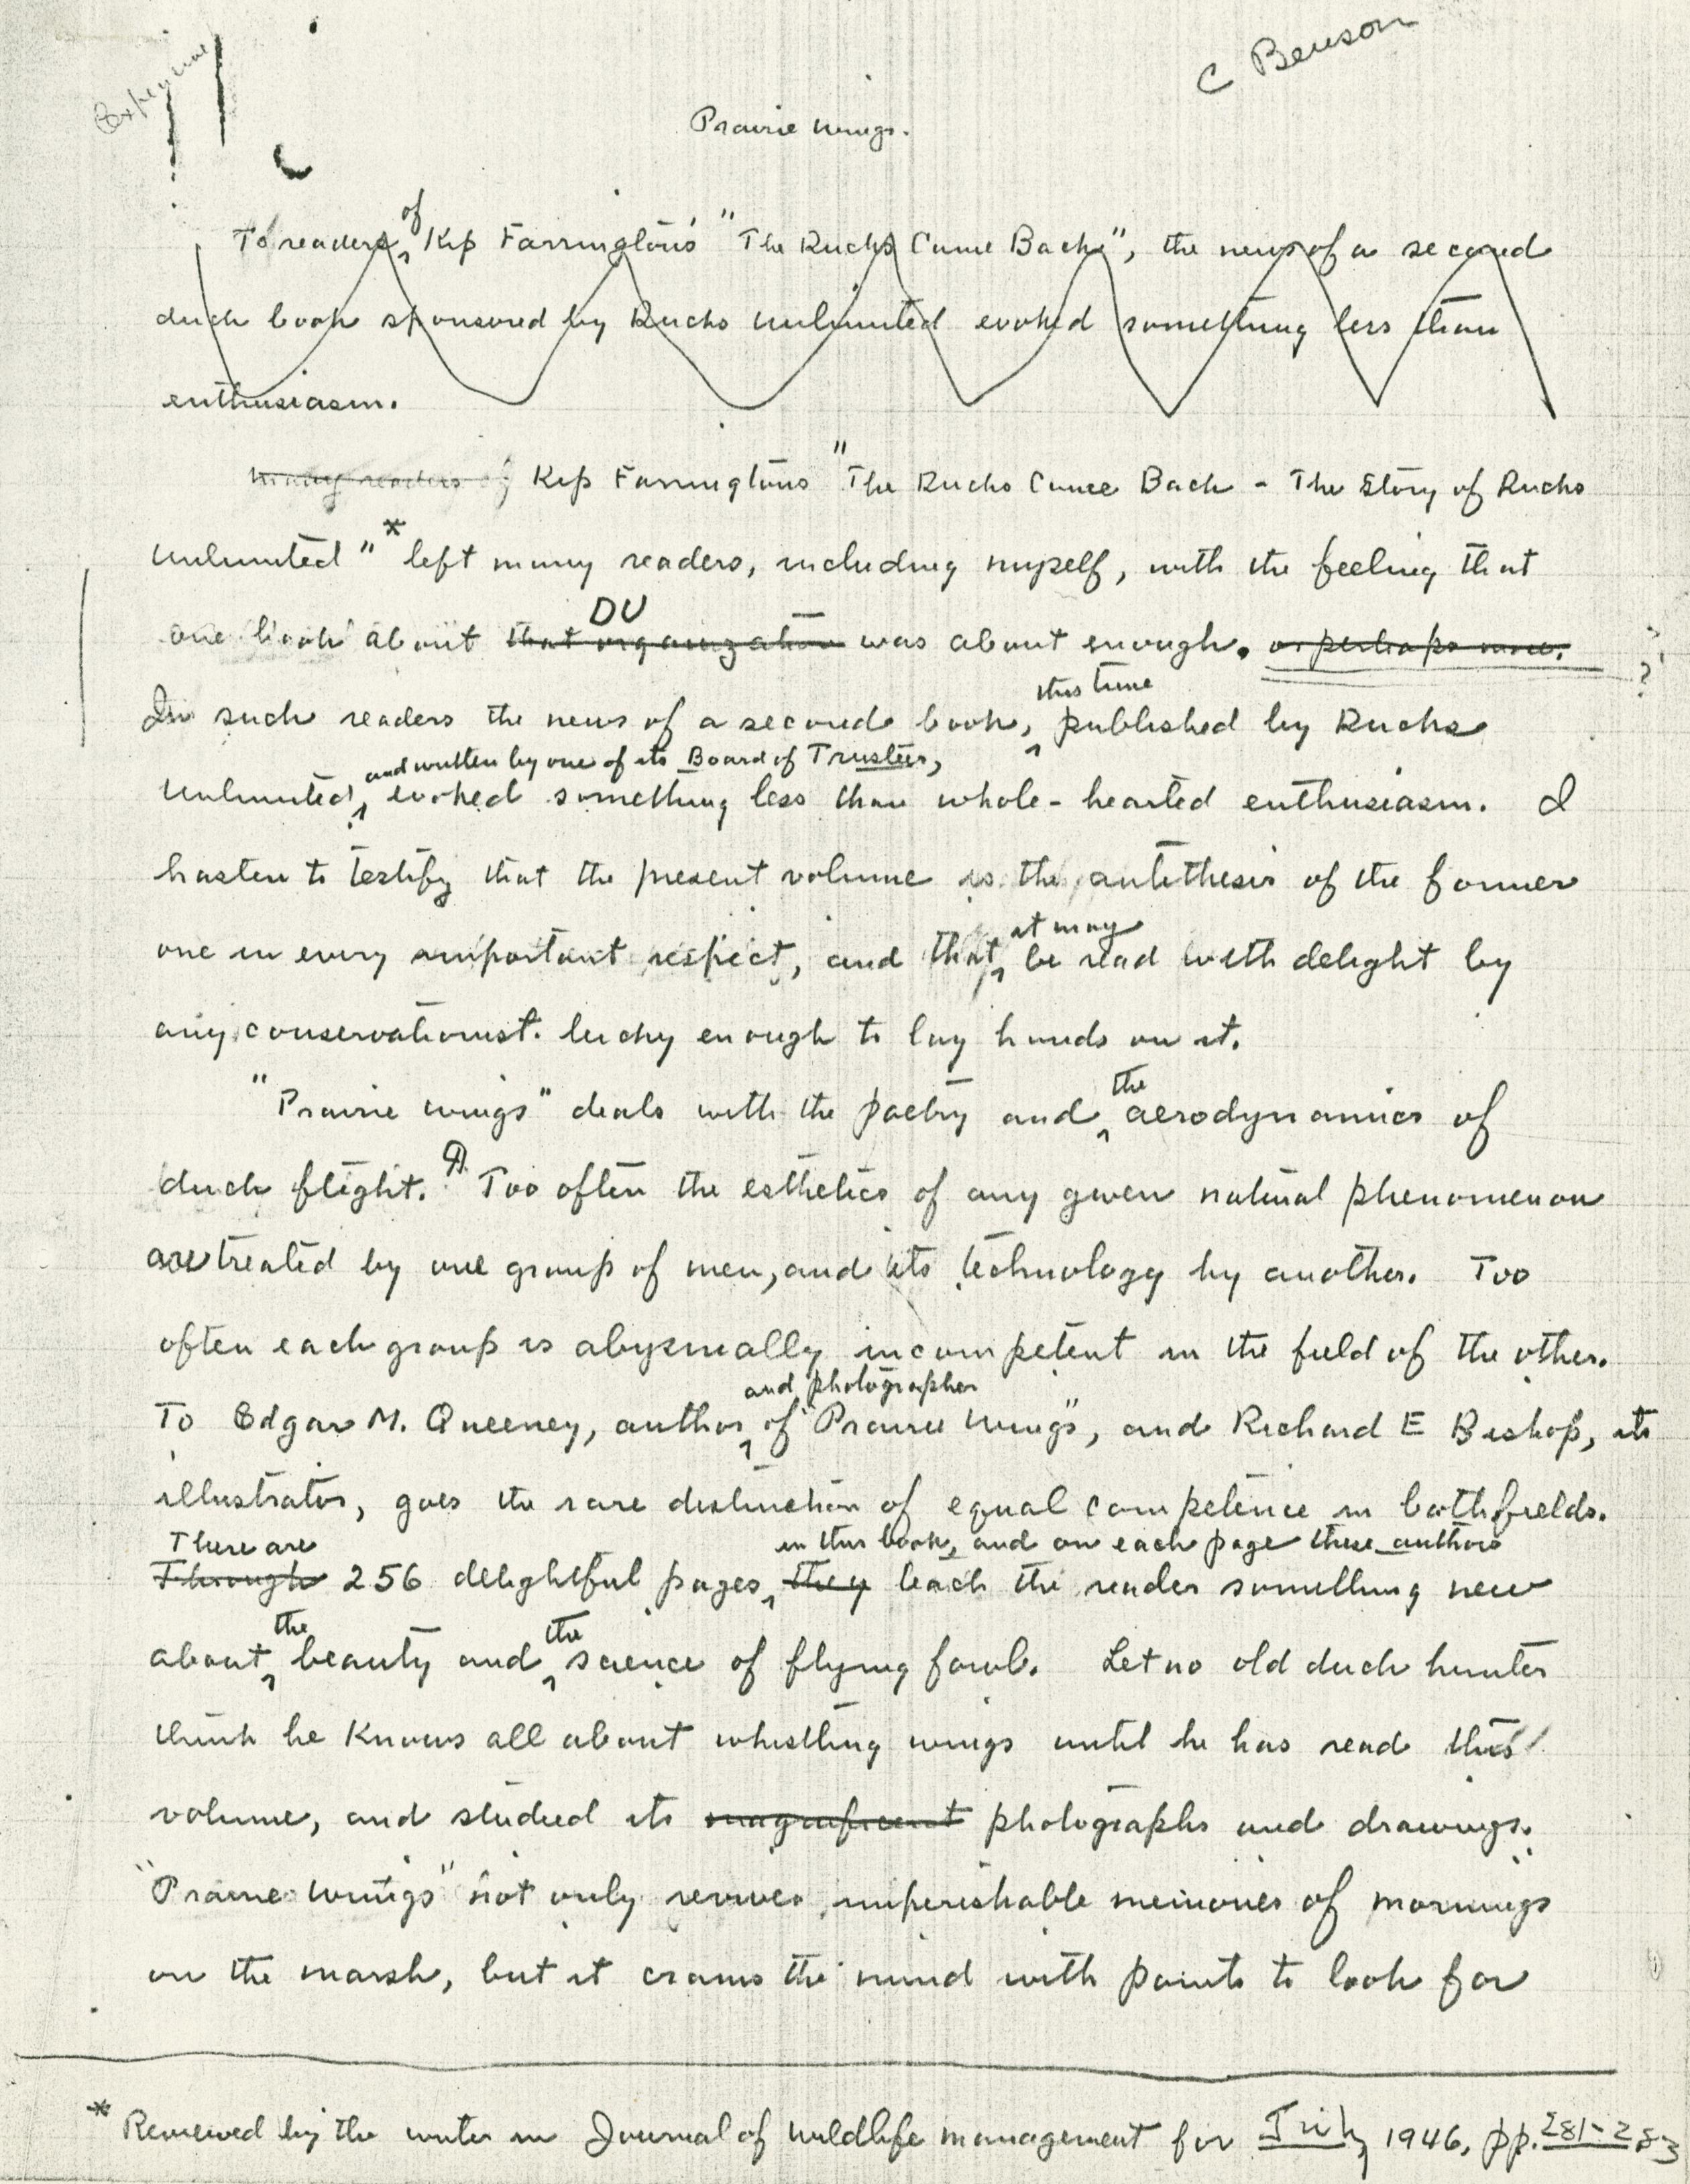 C Benson
Prairie Wings.
To readers of Kip Farrington's "The Ducks Came Back", the news of a second
duck book sponsored by Ducks Unlimited evoked something less than
enthusiasm.
many readers of Kip Farrington's "The Ducks Came Back - The Story of Ducks
Unlimited"* left many readers, including myself, with the feeling that
DU
one book about that organization was about enough. or perhaps more.
this time
In such readers the news of a second book, published by Ducks
and written by one of its Board of Trustees,
Unlimited, evoked something less than whole-hearted enthusiasm. I
hasten to testify that the present volume is the antithesis of the former
it may
one in every important respect, and that be read with delight by
any conservationist lucky enough to lay hands on it.
the
"Prairie Wings" deals with the poetry and aerodynamics of
duck flight. ¶ Too often the esthetics of any given natural phenomenon
are treated by one group of men, and its technology by another. Too
often each group is abysmally incompetent in the field of the other.
and photographer
To Edgar M. Queeney, author of "Prairie Wings", and Richard E Bishop, its
illustrator, goes the rare distinction of equal competence in both fields.
There are in this book, and on each page these authors
Through 256 delightful pages, they teach the reader something new
the the
about beauty and science of flying fowl. Let no old duck hunter
think he knows all about whistling wings until he has read this
volume, and studied its magnificent photographs and drawings.
"Prairie Wings" not only revives imperishable memories of mornings
on the marsh, but it crams the mind with points to look for
* Reviewed by the writer in Journal of Wildlife Management for July 1946, pp. 281-283